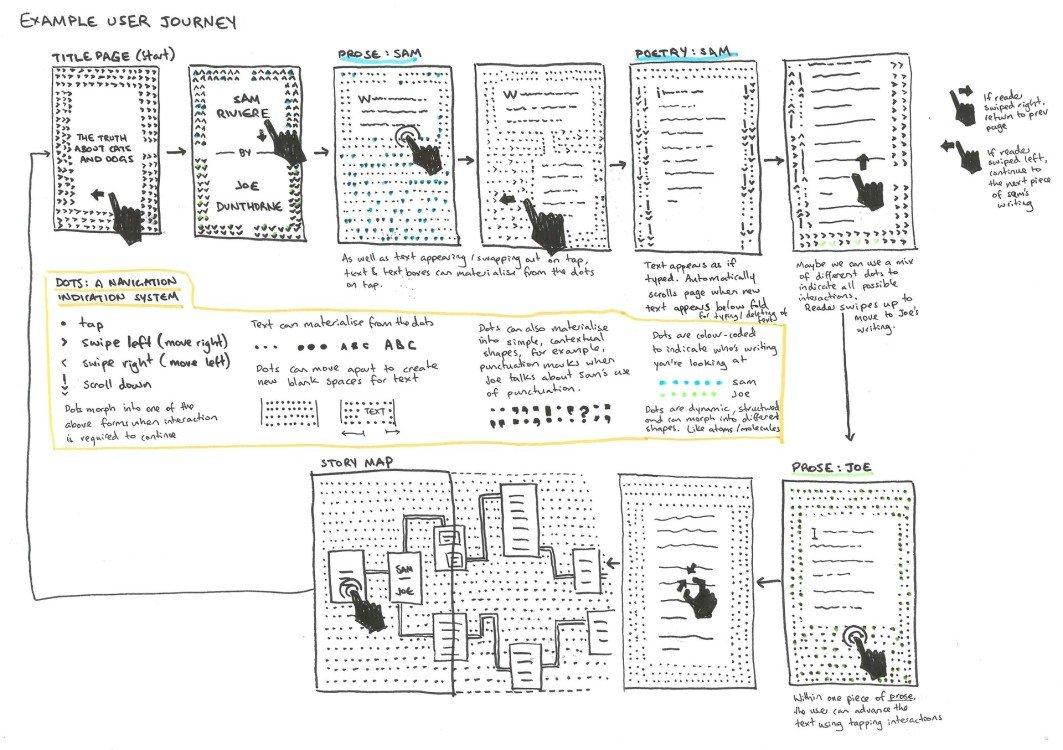 EXAMPLE USER JOURNEY
TITLE PAGE (Start)
THE TRUTH
ABOUT CATS
AND DOGS
SAM
RIVIERE
BY
JOE
DUNTHORNE
PROSE: SAM
W
W
As well as text appearing/swapping out on tap,
text & text boxes can materialise from the dots
on tap.
POETRY: SAM
Text appears as if
typed. Automatically
scrolls page when new
text appears below fold
for typing/deleting of
text
Maybe we can use a mix
of different dots to
indicate all possible
interactions.
Reader swipes up to
move to Joe's
writing.
If reader
swiped right,
return to prev
page
If reader
swiped left,
continue to
the next piece
of Sam's
writing
DOTS: A NAVIGATION
INDICATION SYSTEM
• tap
> swipe left (move right)
< swipe right (move left)
scroll down
Dots morph into one of the
above forms when interaction
is required to continue
Text can materialise from the dots
ABC ABC
Dots can move apart to create
new blank spaces for text
TEXT
Dots can also materialise
into simple, contextual
shapes, for example,
punctuation marks when
Joe talks about Sam's use
of punctuation.
Dots are colour-coded
to indicate who's writing
you're looking at
Sam
Joe
Dots are dynamic, structured
and can morph into different
shapes. Like atoms/molecules
STORY MAP
SAM
JOE
PROSE: JOE
I
Within one piece of prose,
the user can advance the
text using tapping interactions